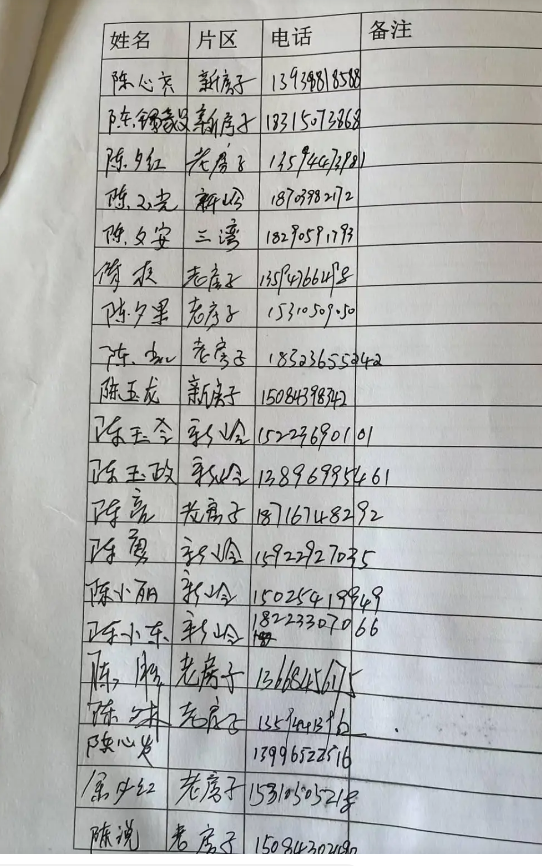 姓名 片区 电话 备注
陈心云 新房子 13938818588
陈锡义 新房子 18315073868
陈夕红 老房子 13594473981
陈玉亮 新岭 18703982172
陈夕安 三湾 18290591793
老房子
陈夕果 老房子 15310509050
陈 老房子 18323655242
陈玉龙 新房子 15084398342
陈玉冬 新岭 15223690101
陈玉政 新岭 13896995461
陈亮 老房子 18716748292
陈勇 新岭 15922927035
陈小丽 新岭 15025419949
陈小东 新岭 18223307066
陈 老房子 13668456175
陈 老房子
陈心 13996522516
老房子 15310505218
陈说 老房子